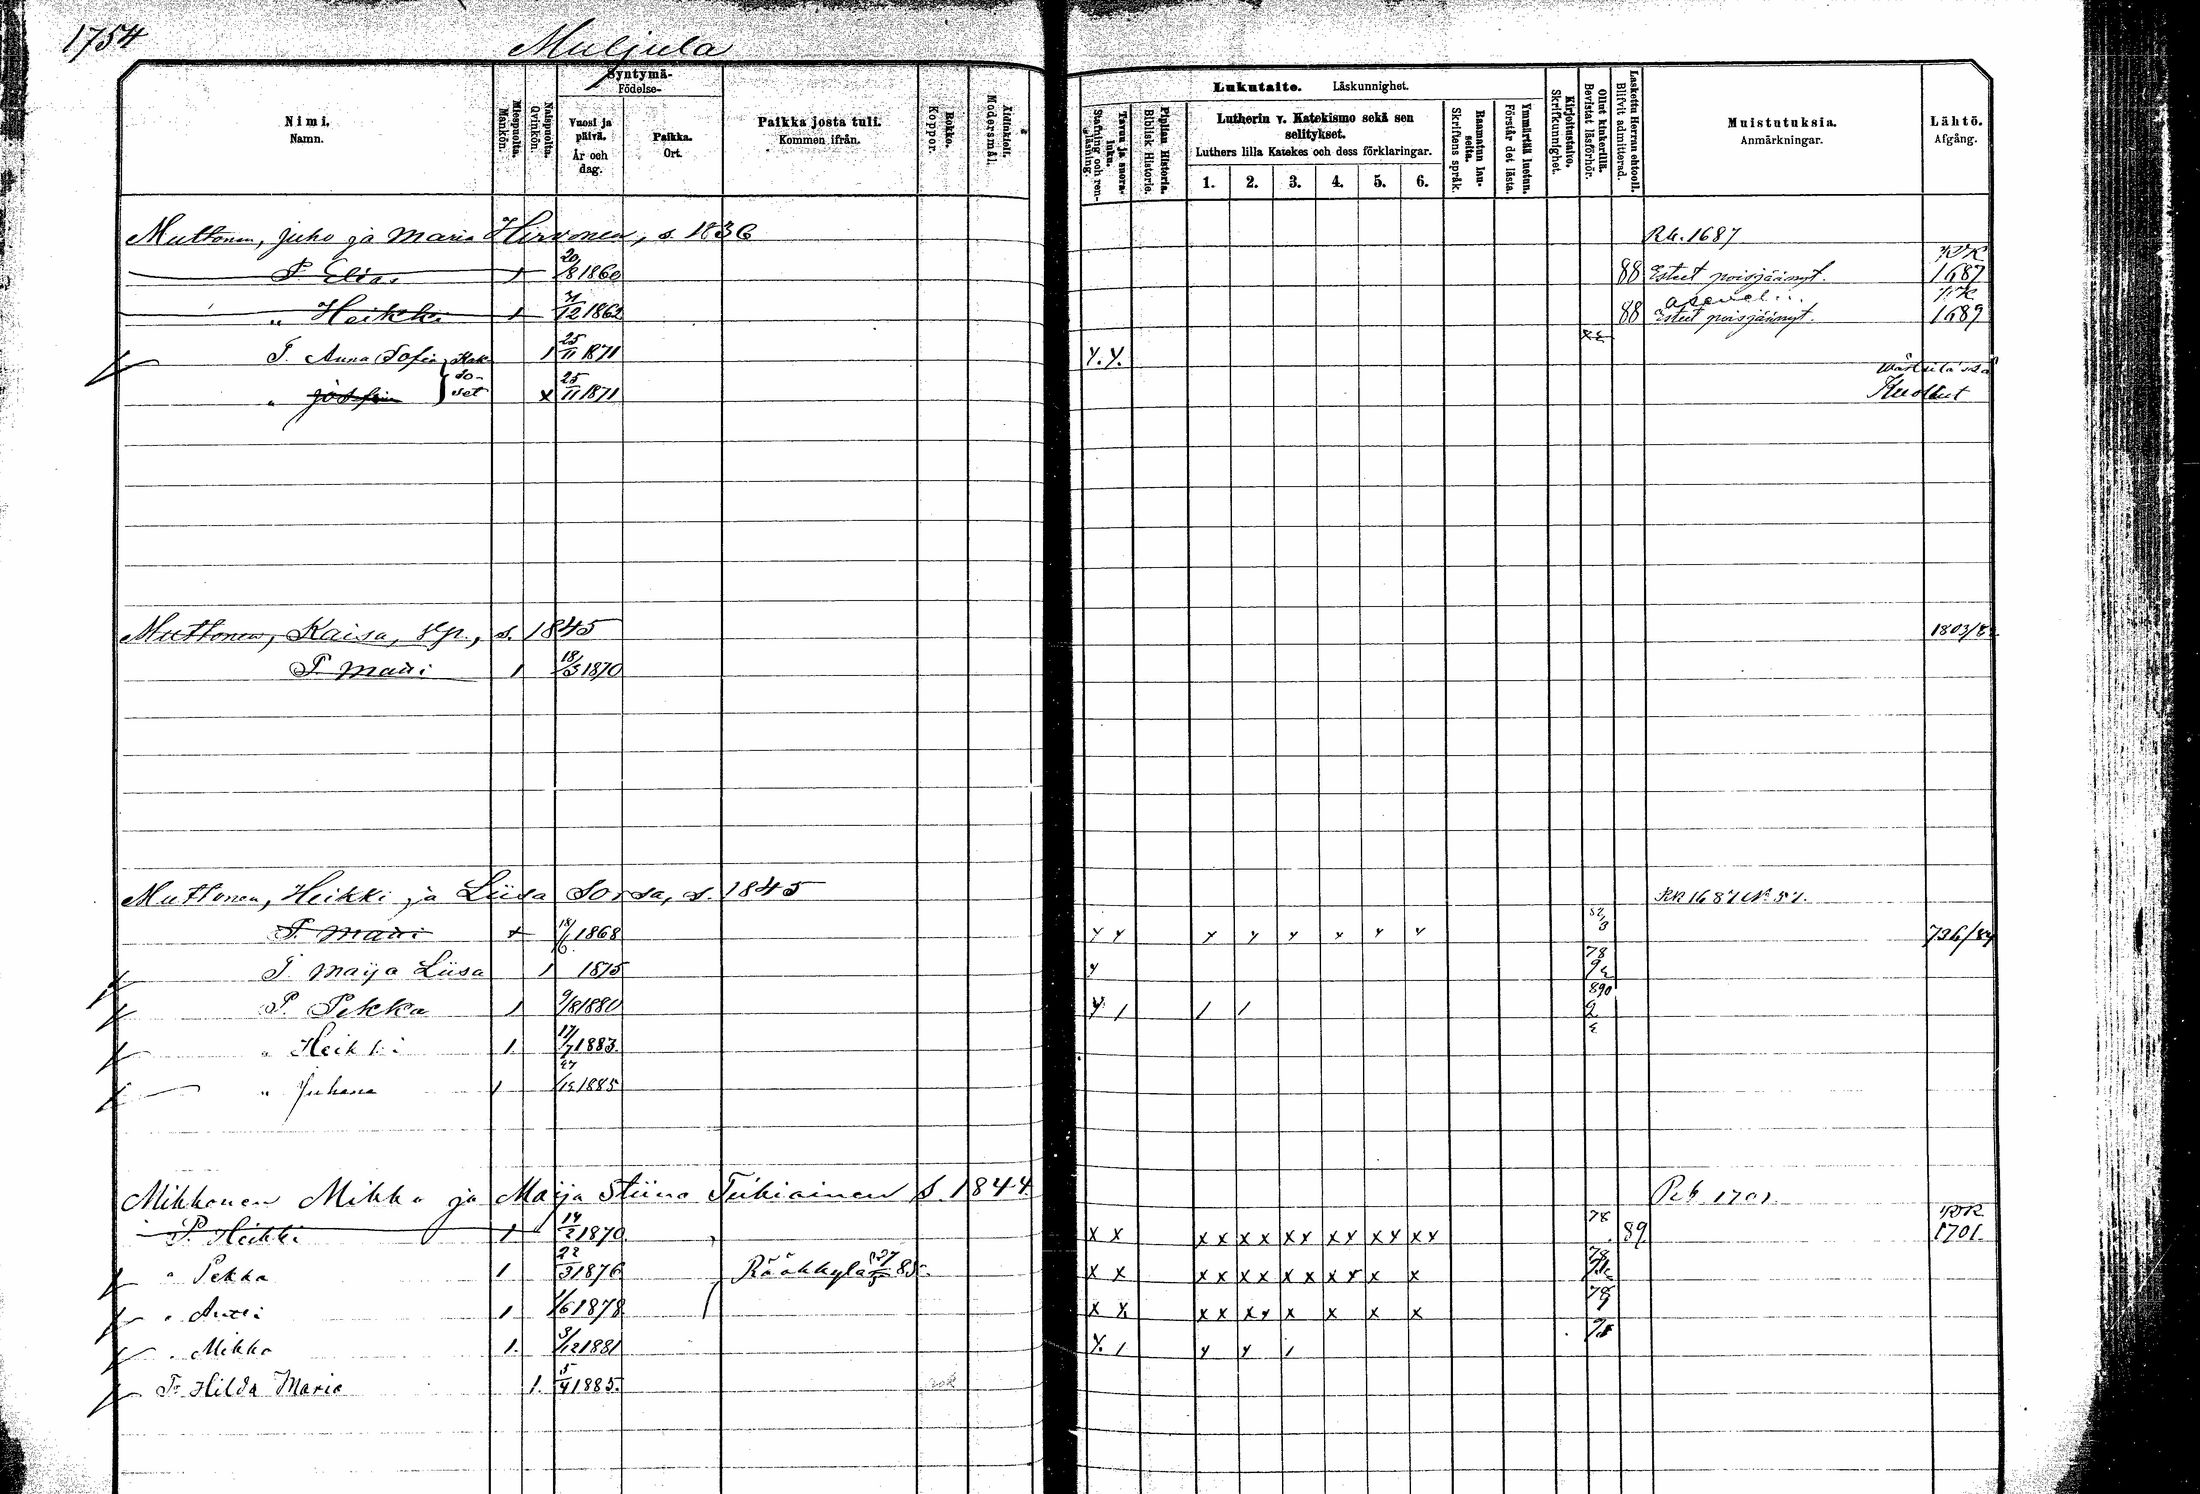 1754
Muljula
Nimi. Namn.
Miespuolta. Mankön.
Naispuolta. Qvinkön.
Syntymä- Födelse-
Vuosi ja päivä. År och dag.
Paikka. Ort.
Paikka josta tuli. Kommen ifrån.
Rokko. Koppor.
Äidinkieli. Modersmål.
Tavuu ja suora- luku. Stafning och ren- läsning.
Piplian Historia. Biblisk Historie.
Lukutaito. Läskunnighet.
Lutherin v. Katekismo sekä sen selitykset.
Luthers lilla Katekes och dess förklaringar.
1. 2. 3. 4. 5. 6.
Raamatun lau- seita. Skriftens språk.
Ymmärtää luetun. Förstår det lästa.
Kirjoitustaito. Skrifkunnighet.
Ollut kinkerillä. Bevistat läsförhör.
Laskettu Herran ehtooll. Blifvit admitterad.
Muistutuksia. Anmärkningar.
Lähtö. Afgång.
Muttonen, Juho ja Maria Hirvonen, s. 1836 Rk. 1687
P. Elias 1 20/8 1860 88 Esteet poisjäänyt. RK 1687
" Heikki 1 /12 1862 88 Esteet poisjäänyt. RK 1689
T. Anna Sofia Kak- 1 25/11 1871 Y. Y.
so- Wärtsilässä
" Josefin set x 25/11 1871 Kuollut
Muttonen, Kaisa, s. 1845 1803/
P. Matti 1 18/3 1870
Muttonen, Heikki ja Liisa Sorsa, s. 1845 RK 1687 No 57.
P. Matti x 18/6 1868 y y y y y x y y 736/84
T. Maija Liisa 1 1875 y 78
P. Pekka 1 9/8 1880 y 1 1 1 890
" Heikki 1 17/7 1883
" Juhana 1 27/12 1885
Mikkonen Mikko ja Maija Stiina Teikiainen S. 1844 Rk 1701
P. Heikki 1 14/2 1870 x x x x x x x y x y x y x y 78 89 RK 1701
" Pekka 1 22/3 1876 Rääkkylä 27/5 85. x x x x x x x x x y x x 78
" Antti 1 1/6 1878 x x x x x y x x x x 78
" Mikko 1 3/12 1881 y 1 y y 1
T. Hilda Maria 1 5/4 1885 rok